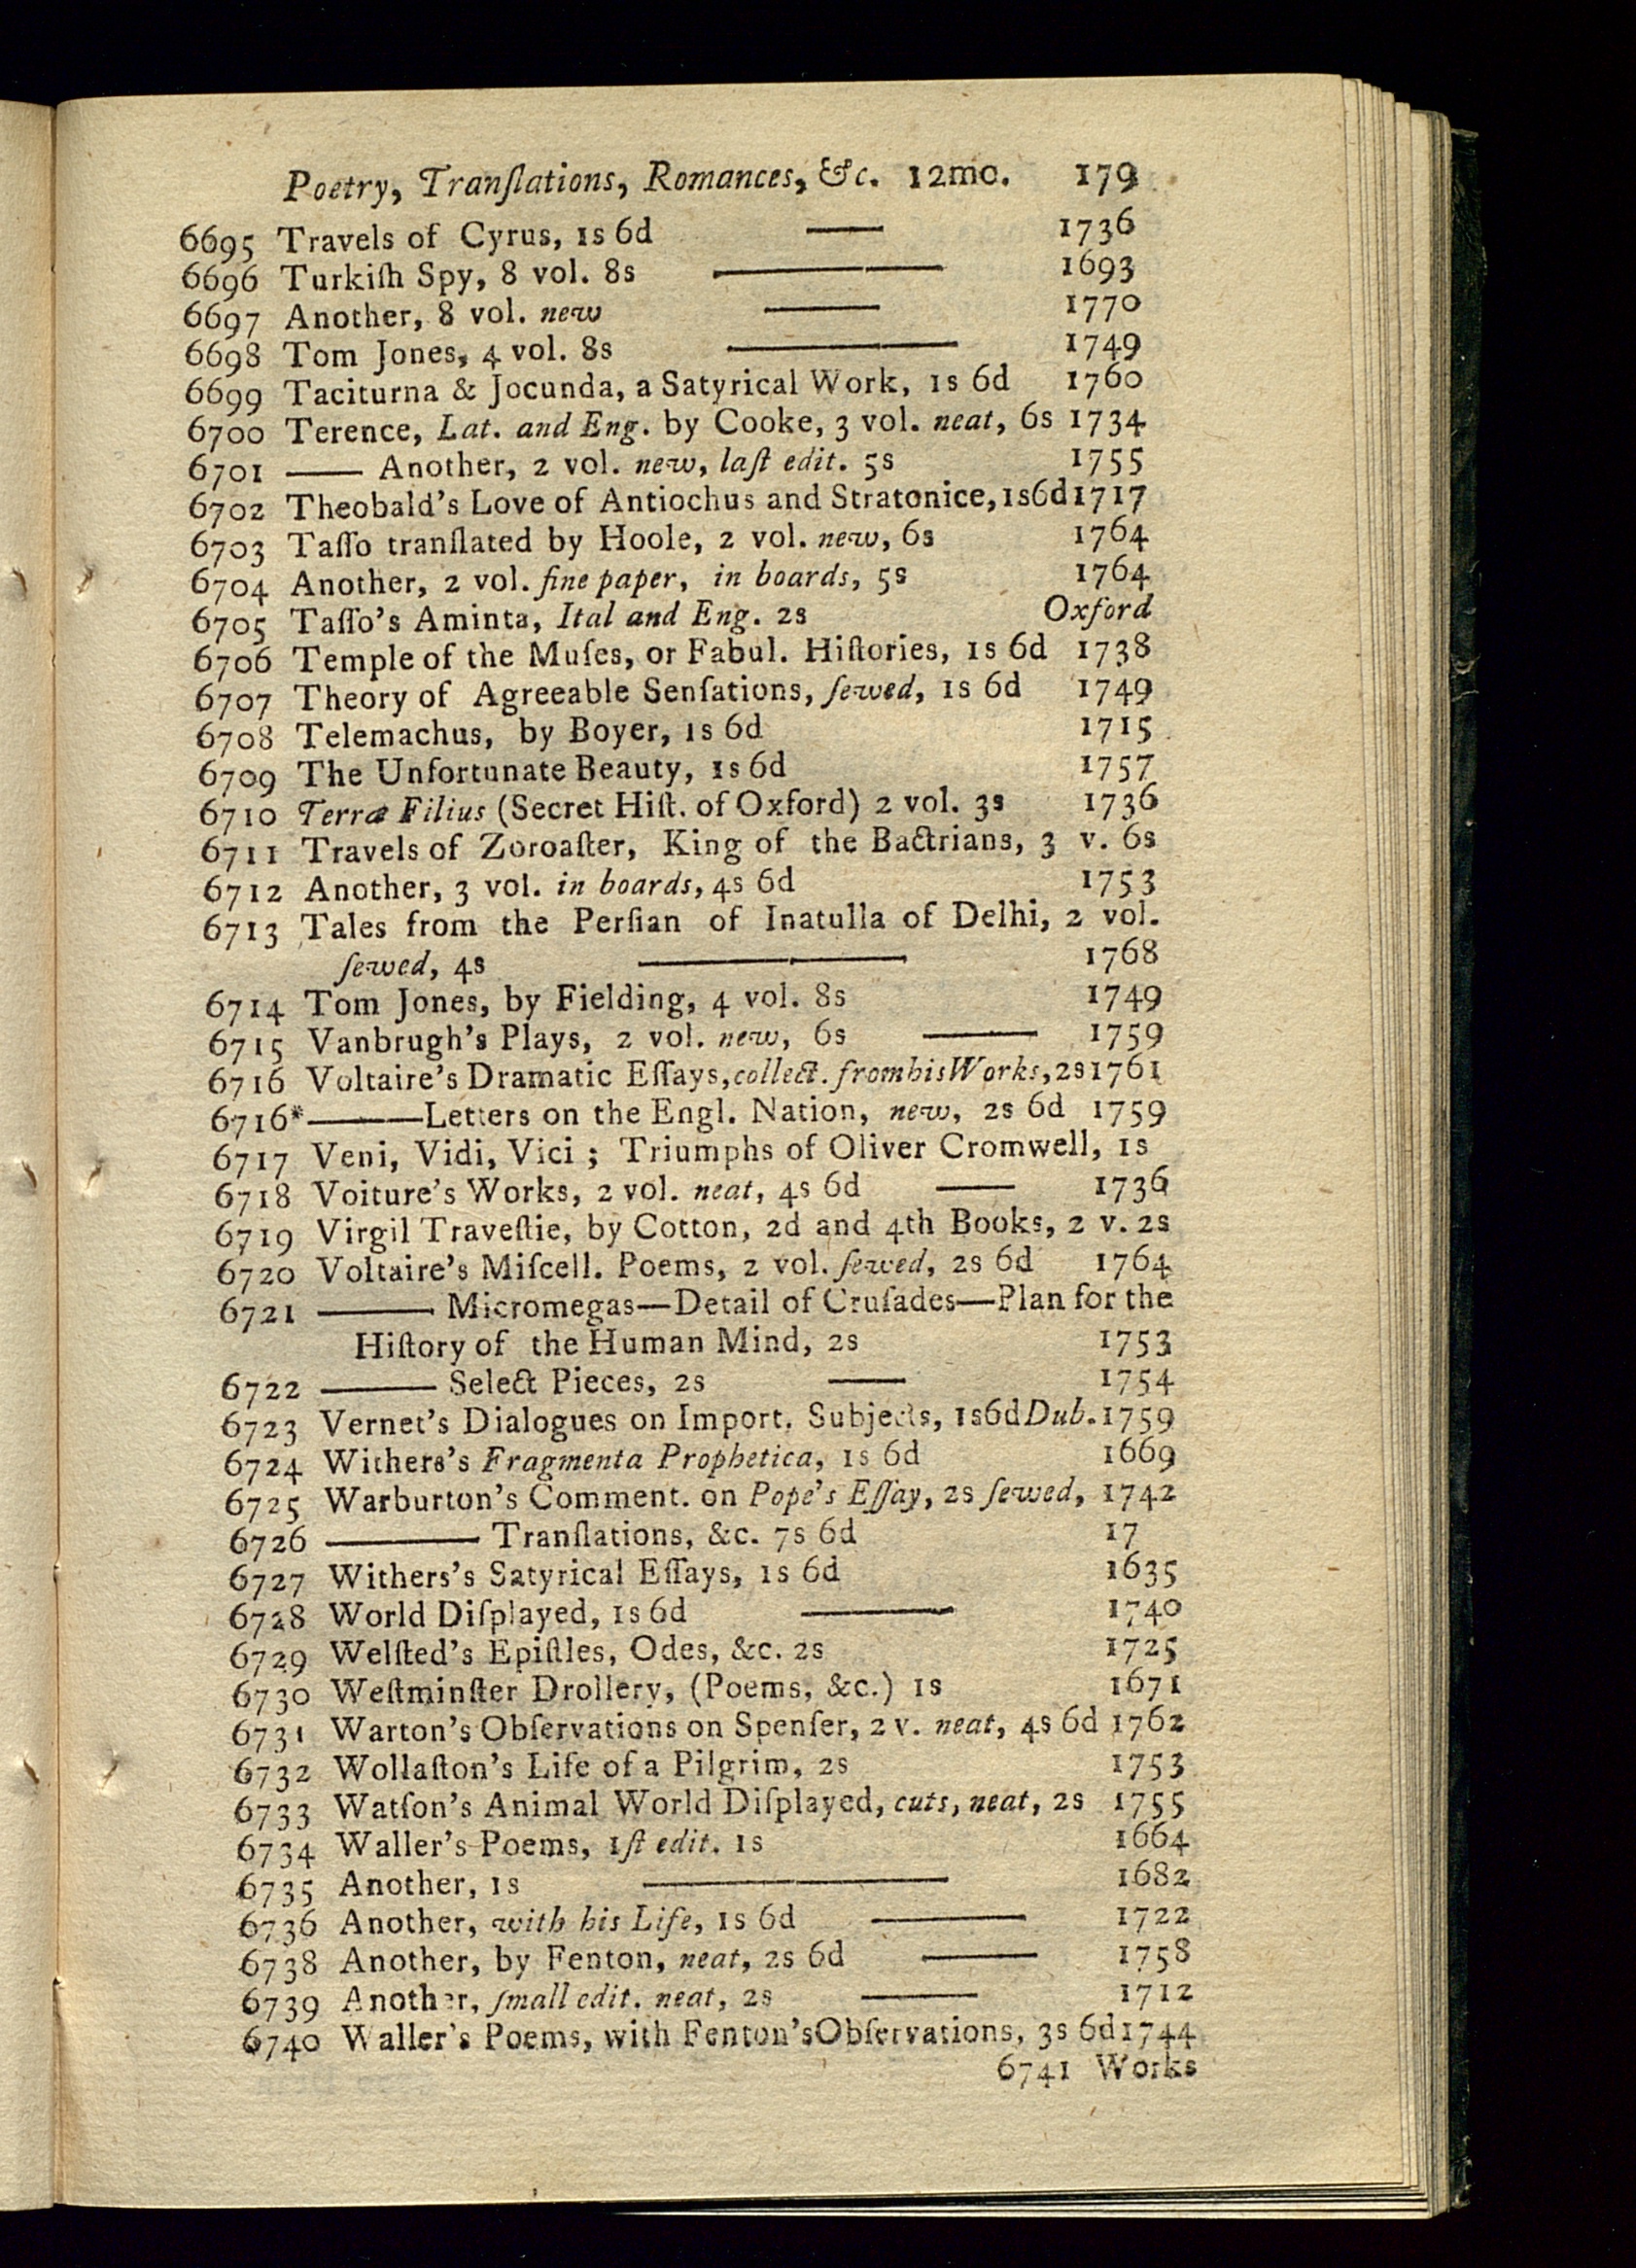 Poetry, Tranſlations, Romances, &c. 12mo. 179
6695 Travels of Cyrus, 1s 6d —— 1736
6696 Turkiſh Spy, 8 vol. 8s —— 1693
6697 Another, 8 vol. new —— 1770
6698 Tom Jones, 4 vol. 8s —— 1749
6699 Taciturna & Jocunda, a Satyrical Work, 1s 6d 1760
6700 Terence, Lat. and Eng. by Cooke, 3 vol. neat, 6s 1734
6701 —— Another, 2 vol. new, laſt edit. 5s 1755
6702 Theobald's Love of Antiochus and Stratonice, 1s6d 1717
6703 Taſſo tranſlated by Hoole, 2 vol. new, 6s 1764
6704 Another, 2 vol. fine paper, in boards, 5s 1764
6705 Taſſo's Aminta, Ital and Eng. 2s Oxford
6706 Temple of the Muſes, or Fabul. Hiſtories, 1s 6d 1738
6707 Theory of Agreeable Senſations, ſewed, 1s 6d 1749
6708 Telemachus, by Boyer, 1s 6d 1715
6709 The Unfortunate Beauty, 1s 6d 1757
6710 Terræ Filius (Secret Hiſt. of Oxford) 2 vol. 3s 1736
6711 Travels of Zoroaſter, King of the Bactrians, 3 v. 6s
6712 Another, 3 vol. in boards, 4s 6d 1753
6713 Tales from the Perſian of Inatulla of Delhi, 2 vol.
ſewed, 4s —— 1768
6714 Tom Jones, by Fielding, 4 vol. 8s 1749
6715 Vanbrugh's Plays, 2 vol. new, 6s —— 1759
6716 Voltaire's Dramatic Eſſays, collect. from his Works, 2s 1761
6716* —— Letters on the Engl. Nation, new, 2s 6d 1759
6717 Veni, Vidi, Vici ; Triumphs of Oliver Cromwell, 1s
6718 Voiture's Works, 2 vol. neat, 4s 6d —— 1736
6719 Virgil Traveſtie, by Cotton, 2d and 4th Books, 2 v. 2s
6720 Voltaire's Miſcell. Poems, 2 vol. ſewed, 2s 6d 1764
6721 —— Micromegas—Detail of Cruſades—Plan for the
Hiſtory of the Human Mind, 2s 1753
6722 —— Select Pieces, 2s —— 1754
6723 Vernet's Dialogues on Import. Subjects, 1s6d Dub. 1759
6724 Withers's Fragmenta Prophetica, 1s 6d 1669
6725 Warburton's Comment. on Pope's Eſſay, 2s ſewed, 1742
6726 —— Tranſlations, &c. 7s 6d 17
6727 Withers's Satyrical Eſſays, 1s 6d 1635
6728 World Diſplayed, 1s 6d —— 1740
6729 Welſted's Epiſtles, Odes, &c. 2s 1725
6730 Weſtminſter Drollery, (Poems, &c.) 1s 1671
6731 Warton's Obſervations on Spenſer, 2 v. neat, 4s 6d 1762
6732 Wollaſton's Life of a Pilgrim, 2s 1753
6733 Watſon's Animal World Diſplayed, cuts, neat, 2s 1755
6734 Waller's Poems, 1ſt edit. 1s 1664
6735 Another, 1s —— 1682
6736 Another, with his Life, 1s 6d —— 1722
6738 Another, by Fenton, neat, 2s 6d —— 1758
6739 Another, ſmall edit. neat, 2s —— 1712
6740 Waller's Poems, with Fenton's Obſervations, 3s 6d 1744
6741 Works